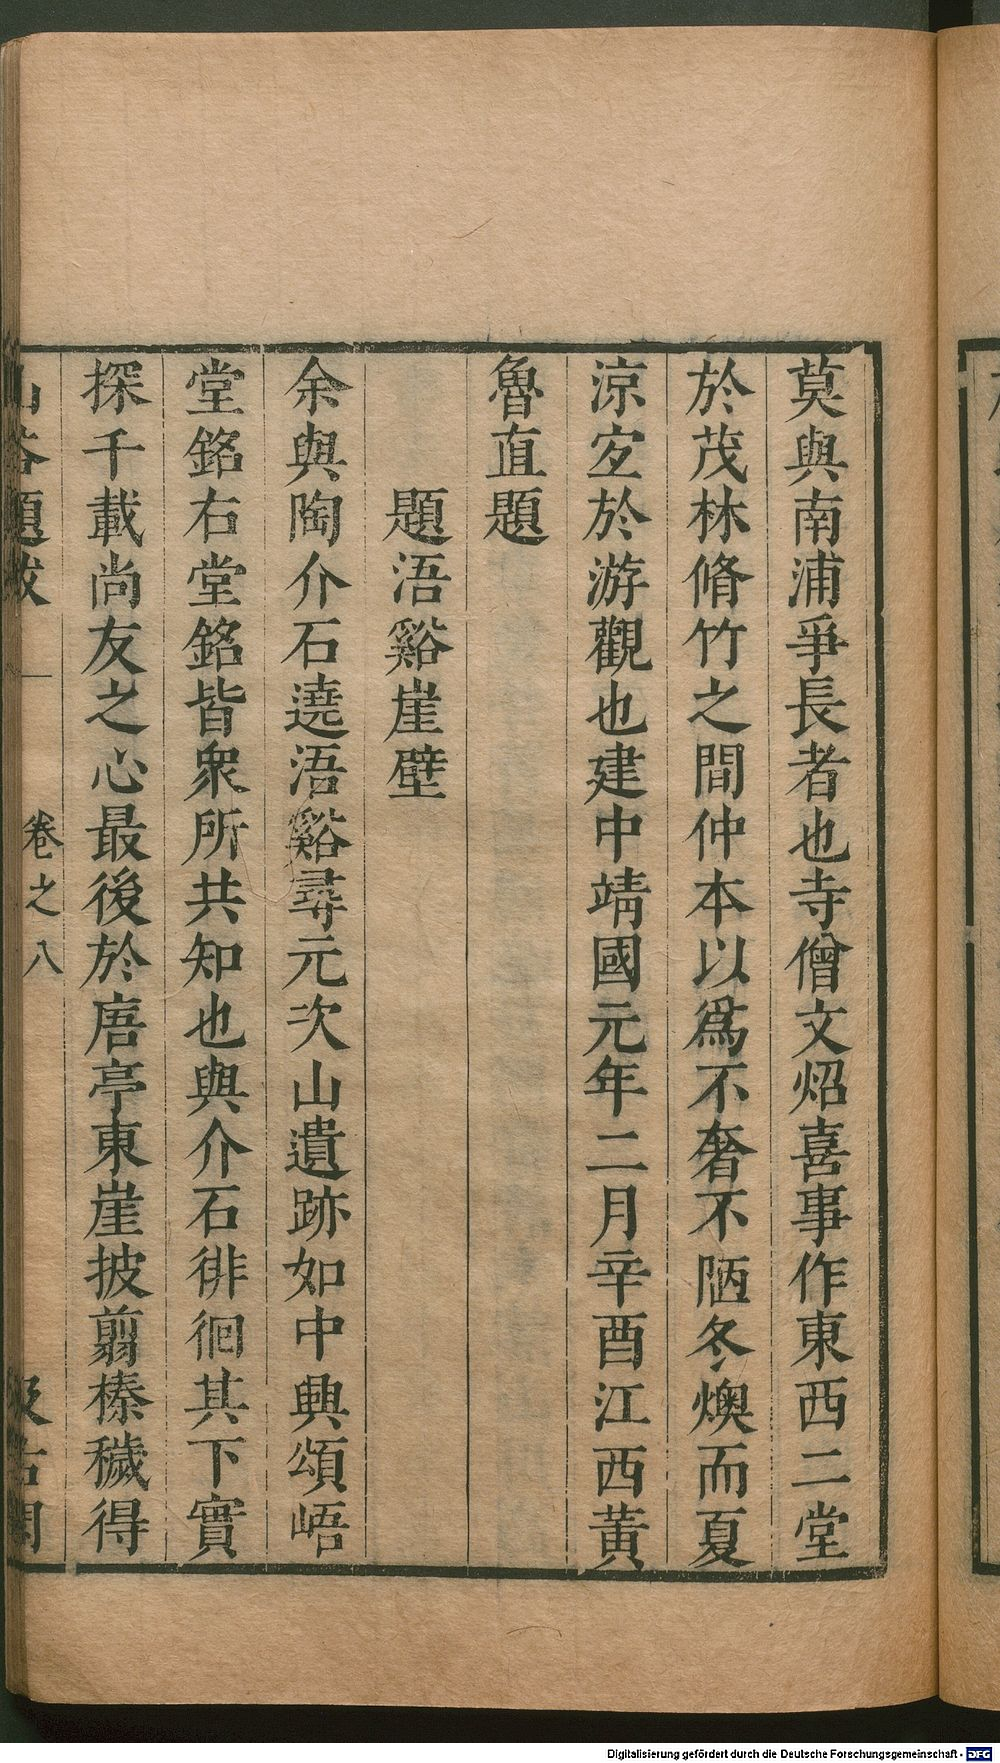 莫與南浦爭長者也寺僧文炤喜事作東西二堂
於茂林脩竹之間仲本以爲不奢不陋冬燠而夏
涼宐於游觀也建中靖國元年二月辛酉江西黃
魯直題
題浯谿崖壁
余與陶介石遶浯谿尋元次山遺跡如中興頌峿
堂銘右堂銘皆衆所共知也與介石徘徊其下實
探千載尚友之心最後於㾗亭東崖披翦榛穢得
山谷題跋 卷之八 汲古閣
Digitalisierung gefördert durch die Deutsche Forschungsgemeinschaft - DFG